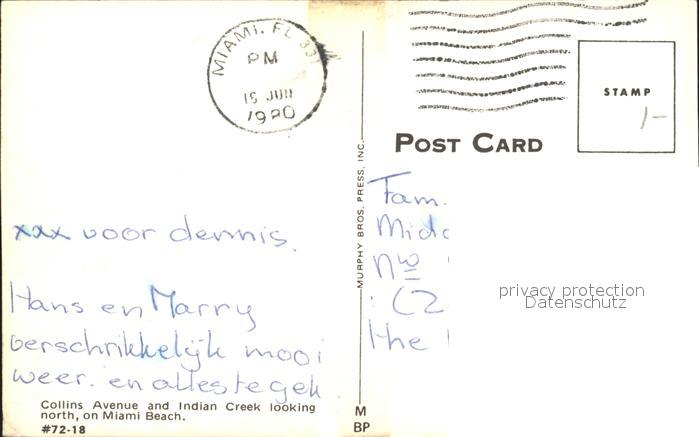 MIAMI, FL 331
PM
16 JUN
1980
POST CARD
STAMP
1-
MURPHY BROS. PRESS, INC.
xxx voor dennis.
Hans en Marry
verschrikkelijk mooi
weer. en alles te gek
Fam.
Midd
Nw
(2
the
privacy protection
Datenschutz
Collins Avenue and Indian Creek looking
north, on Miami Beach.
#72-18
M
BP